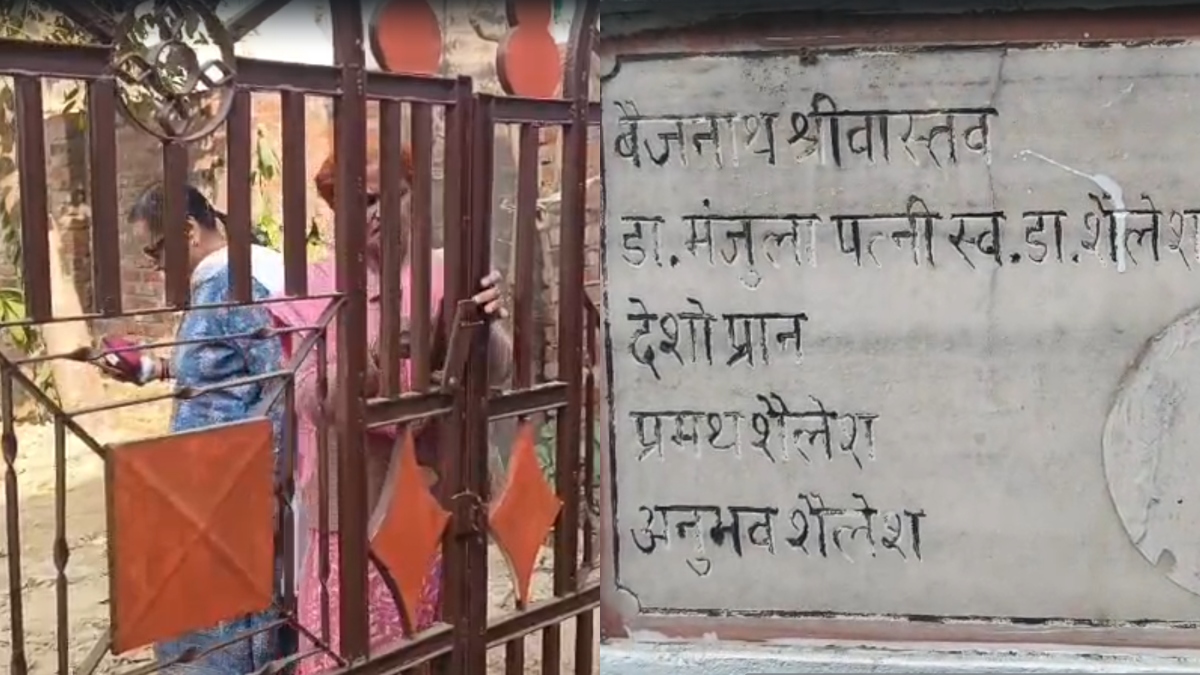 बैजनाथ श्रीवास्तव
डा. मंजुला पत्नी स्व. डा. शैलेश
देशो प्रान
प्रमथ शैलेश
अनुभव शैलेश